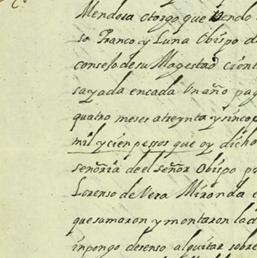 Mendosa otorgo que Vendo
so franco y Luna Obispo d
consejo de su Magestad cient
sayada en cada Un año pag
quatro meses a treynta y sinco p
mil y cien pessos que oy dicho
señoria de el señor Obispo p
Lorenso de Vera Miranda
que sumaron y montaron la d
inpongo desenso al quitar sobre